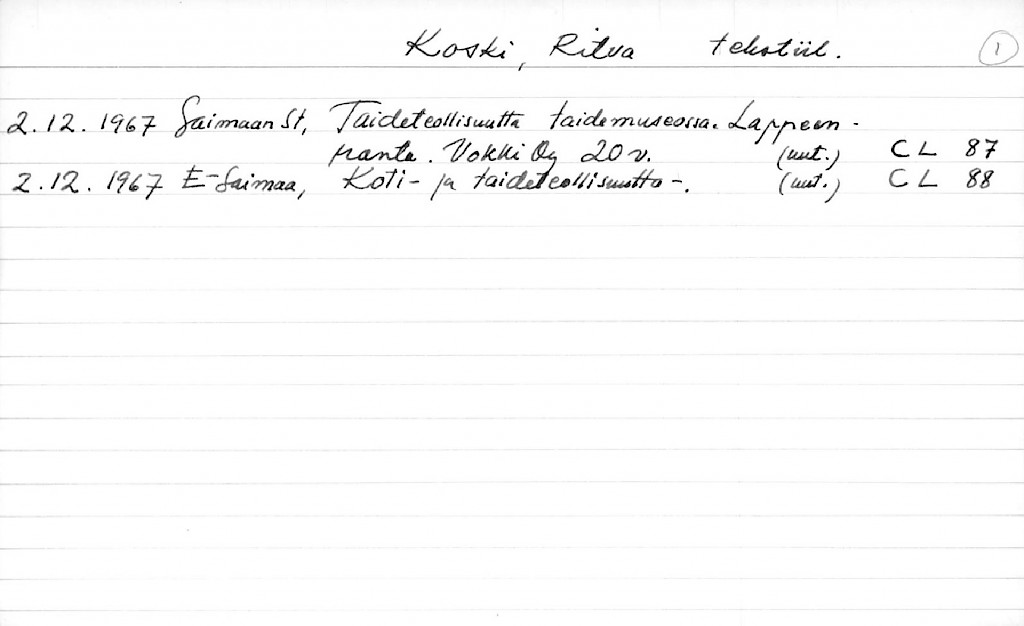 Koski, Ritva tekstiil. 1
2.12.1967 Saimaan St, Taideteollisuutta taidemuseossa. Lappeen-
ranta. Vokki Oy 20 v. (uut.) CL 87
2.12.1967 E-Saimaa, Koti- ja taideteollisuutta-. (uut.) CL 88